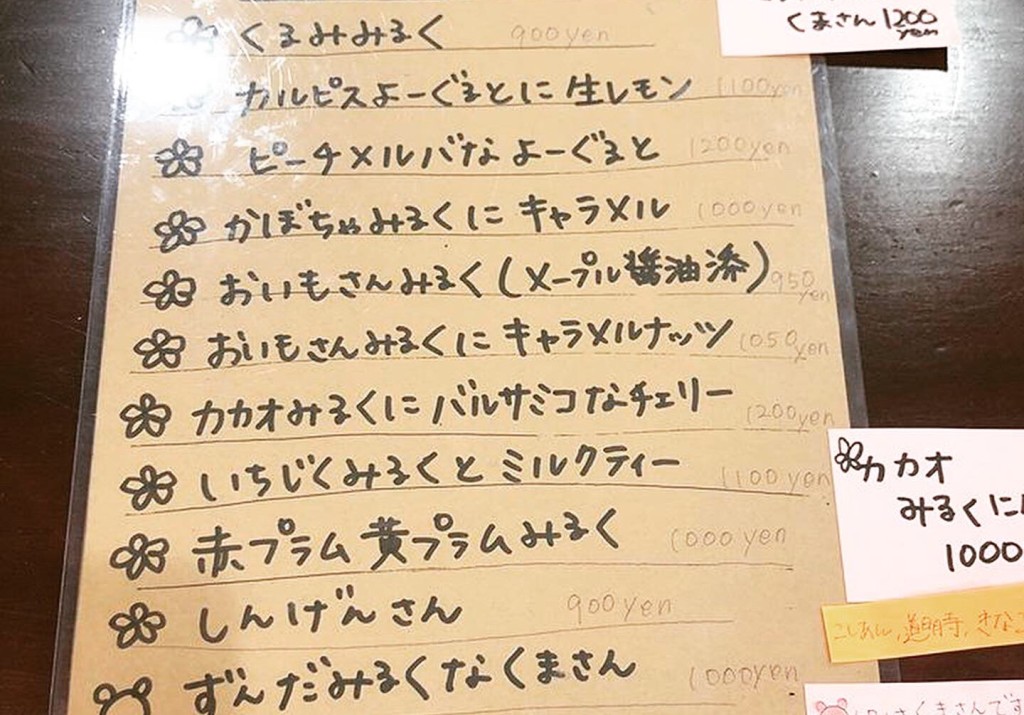 くるみみるく 900yen
カルピスよーぐるとに生レモン 1100yen
ピーチメルバな よーぐると 1200yen
かぼちゃみるくに キャラメル 1000yen
おいもさんみるく(メープル醤油添) 950yen
おいもさんみるくに キャラメルナッツ 1050yen
カカオみるくに バルサミコなチェリー 1200yen
いちじくみるくと ミルクティー 1100yen
赤プラム 黄プラムみるく 1000yen
しんげんさん 900yen
ずんだみるくなくまさん 1000yen
くまさん 1200yen
カカオ
みるくに
1000
こしあん,道明寺,きなこ
くまさんです